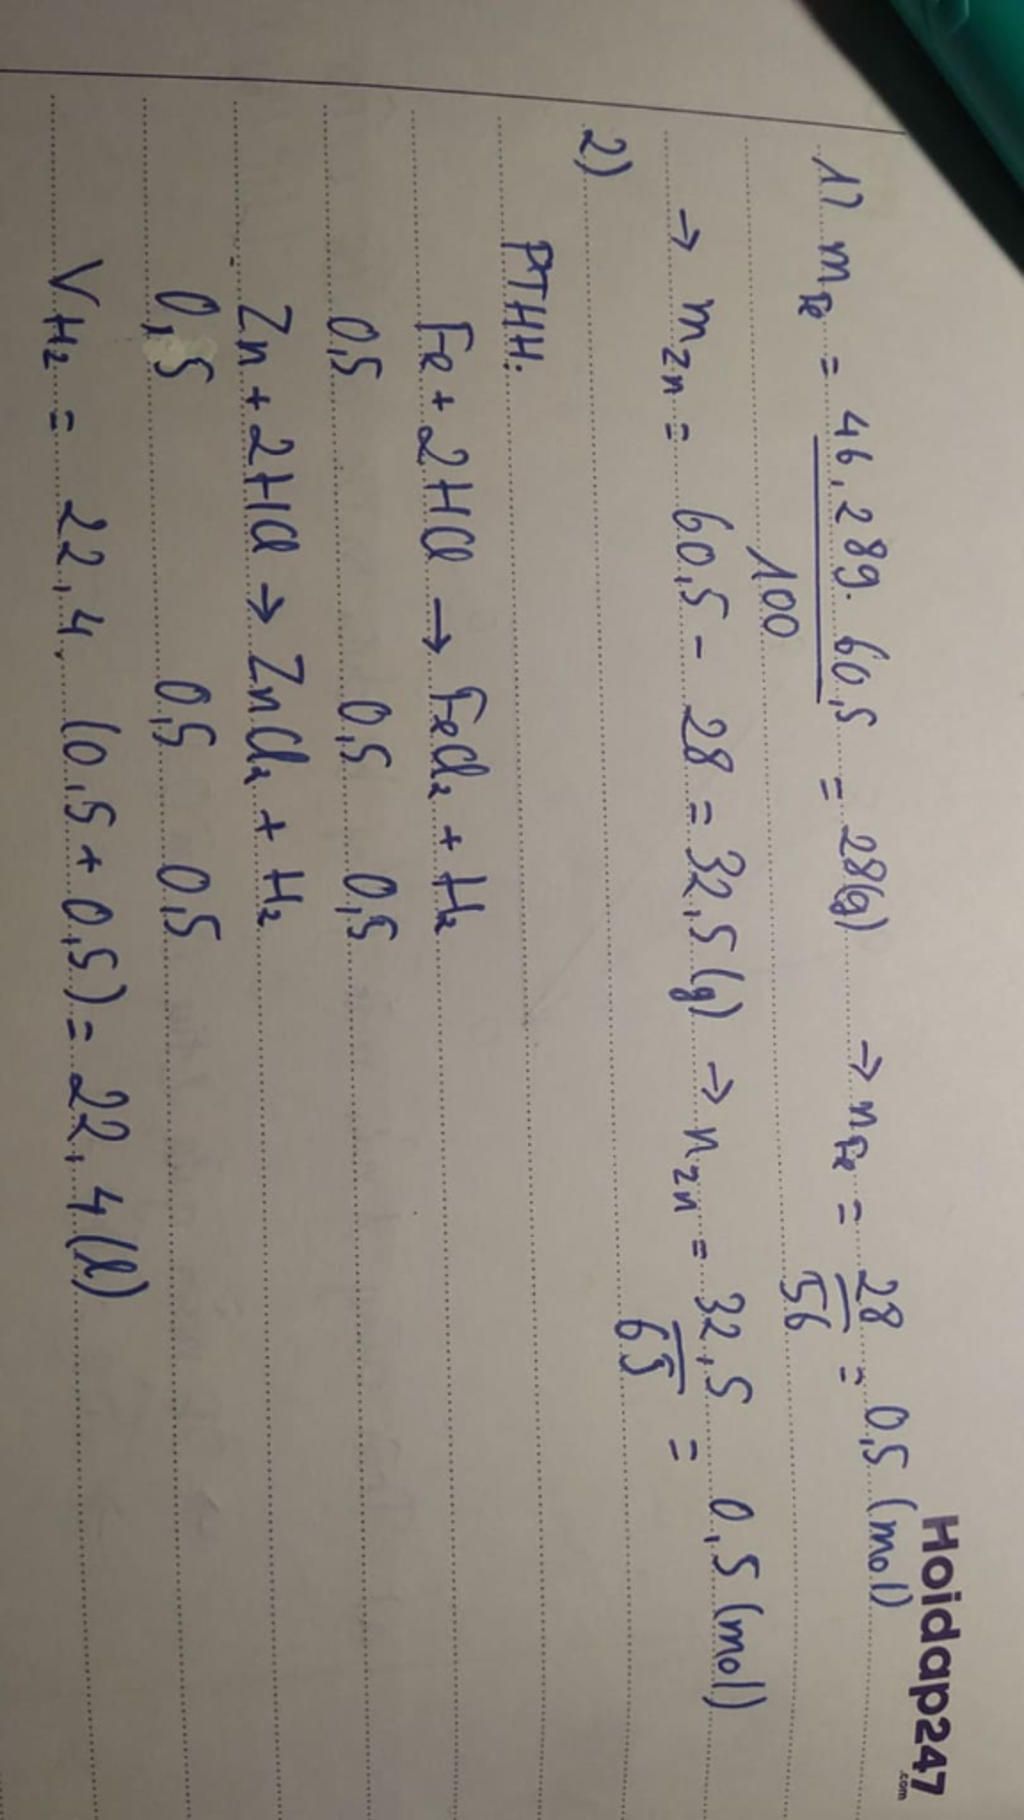 Hoidap247
.com
1) mFe = 46,289. 60,5 / 100 = 28(g) → nFe = 28/56 = 0,5 (mol)
→ mZn = 60,5 - 28 = 32,5 (g) → nZn = 32,5/65 = 0,5 (mol)
2)
PTHH:
Fe + 2HCl → FeCl₂ + H₂
0,5 0,5 0,5
Zn + 2HCl → ZnCl₂ + H₂
0,5 0,5 0,5
VH₂ = 22,4. (0,5 + 0,5) = 22,4 (l)